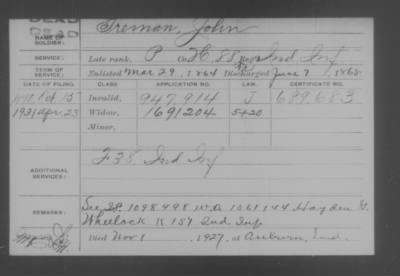 DEAD
DEAD
Treman, John
NAME OF SOLDIER:
SERVICE:
Late rank, P Co. H, 88 Reg't Ind Inf
TERM OF SERVICE:
Enlisted Mar 29, 1864 Discharged June 7, 1865
DATE OF FILING.
CLASS
APPLICATION NO.
LAW.
CERTIFICATE NO.
Invalid, 947,914 J 689,683
1921 Apr. 23 Widow, 1691204 5+20
Minor,
ADDITIONAL SERVICES:
F 38 Ind Inf
REMARKS:
See 1098498 W.O. 1061144 Hayden
Wheelock K 157 Ind Inf
Died Nov 1927, at Auburn, Ind.